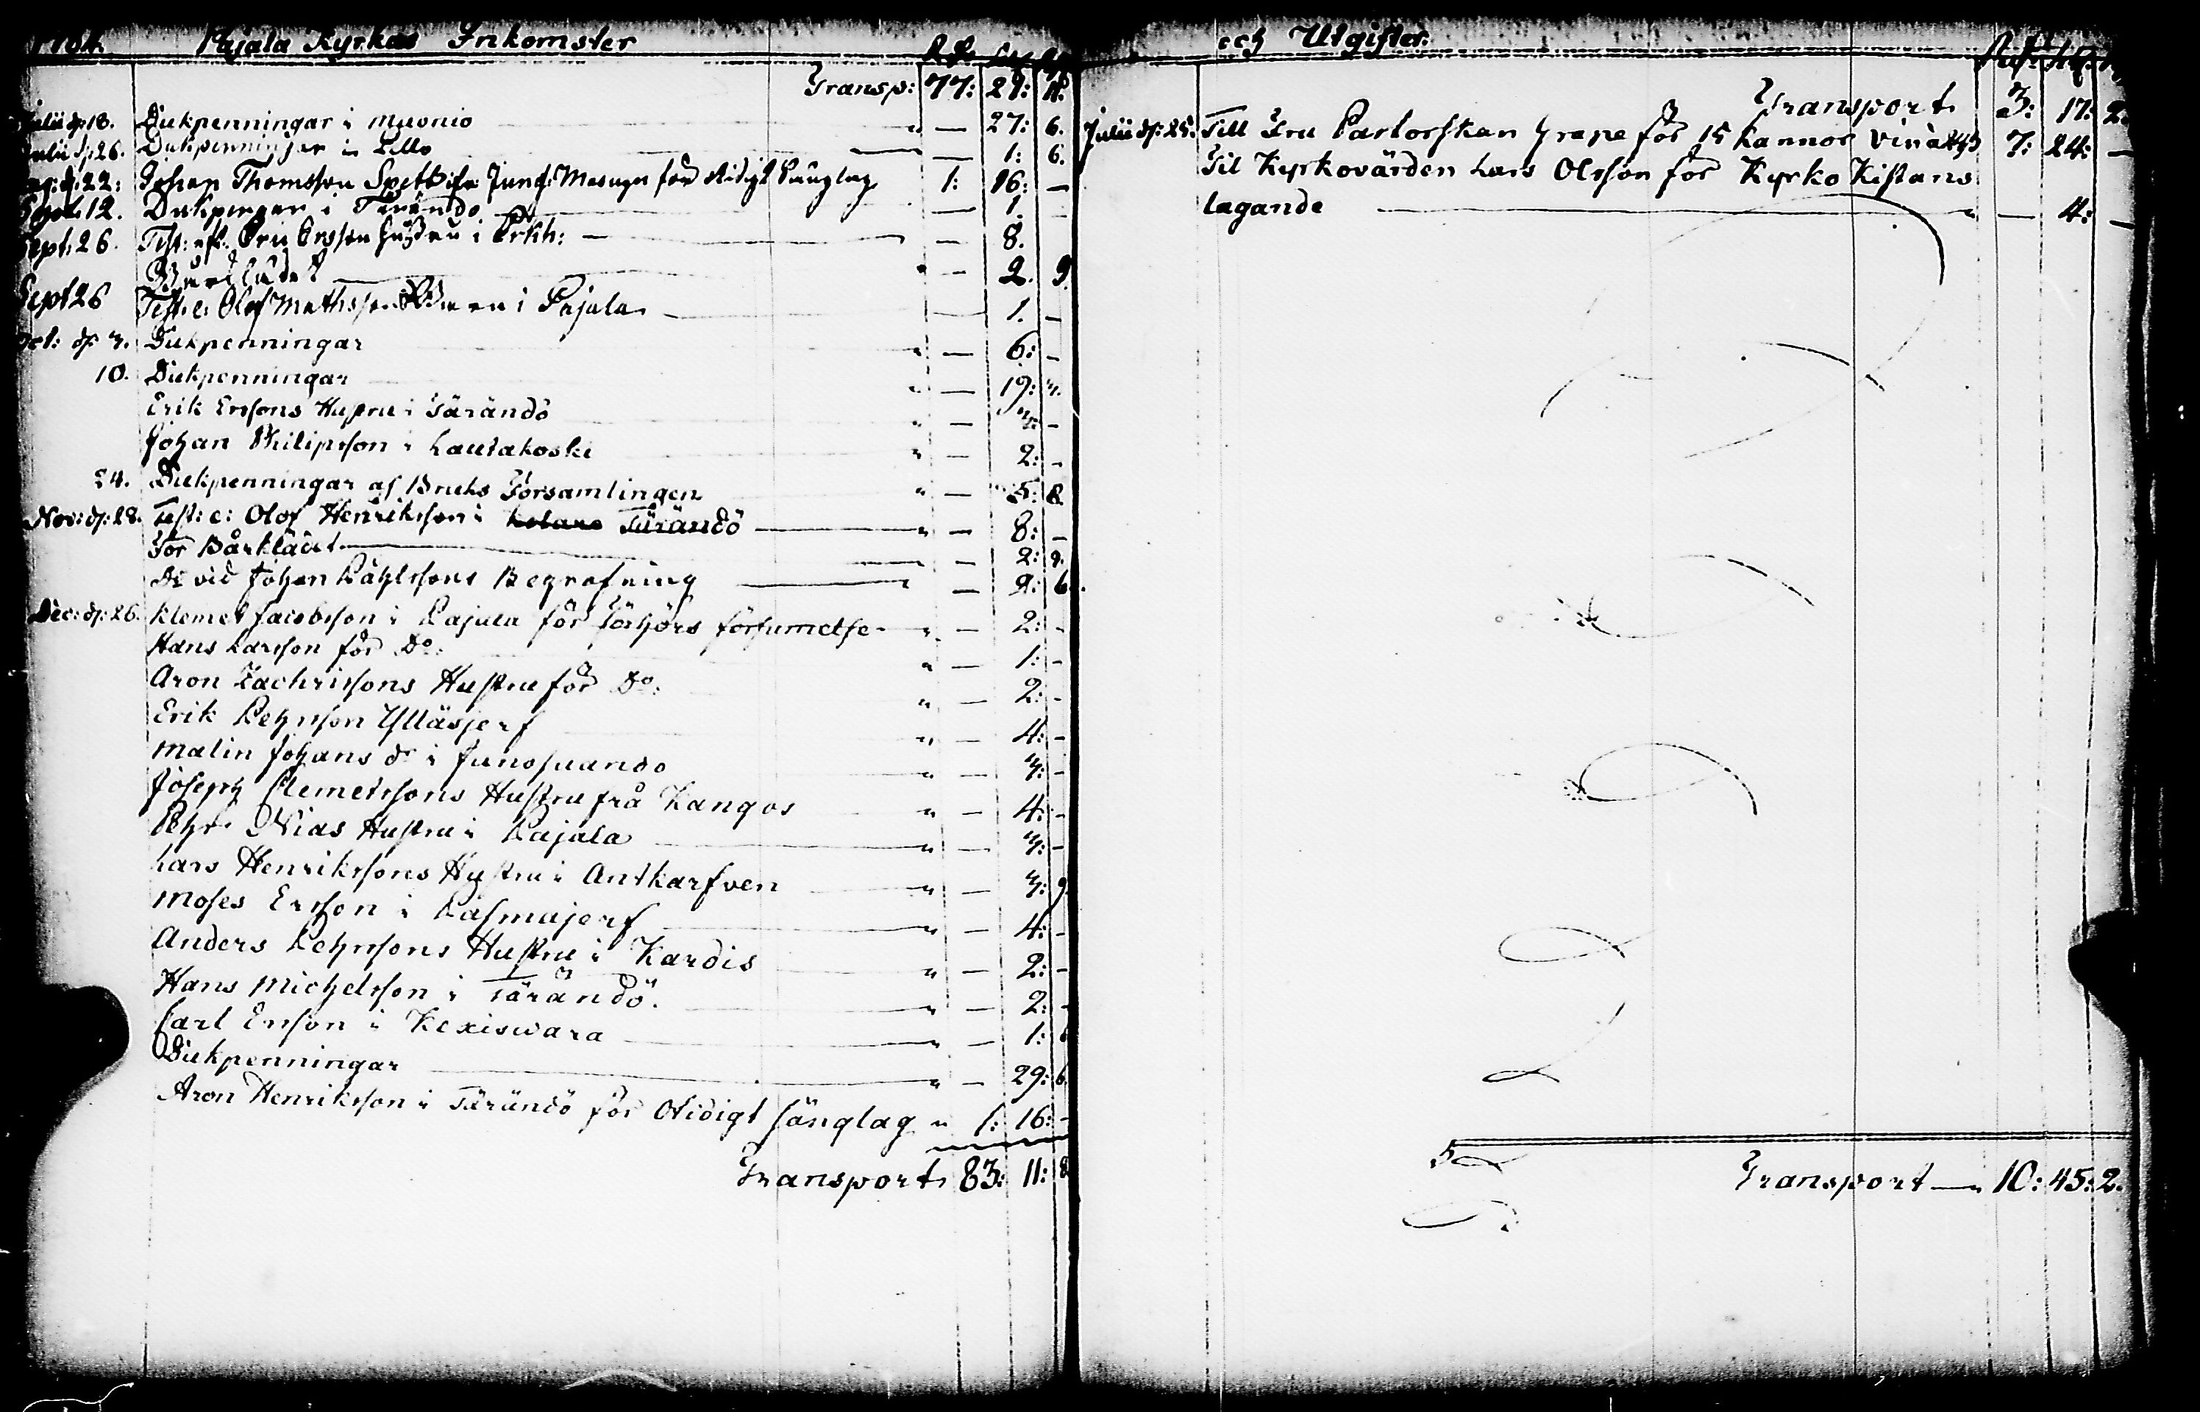 Pajala Kyrkas Inkomster
Transp: 77: 29:
Julii d: 18. Diekpenningar i Muonio " — 27: 6.
Julii d: 26. Diekpenningar i — 1: 6.
Aug: d: 22: Johan Thomsson för otidigt Sänglag 1: 16: —
Sept: 12. i Tärändö — 1. —
Sept: 26. Test: eft: i — 8.
" — 2. 9.
Sept 26 Test: e: Olof Mathsson i Pajala — 1. —
Oct: d: 3. Diekpenningar " — 6: —
10. Diekpenningar " — 19: 3.
Erik Erssons Hustru i Tärändö " — 3: —
Johan Philipsson i Lautakoski " — 2: —
24. Diekpenningar af Bruks Församlingen " — 5: 8.
Nov: d: 28. Test: e: Olof Henriksson i Tärändö " — 8: —
För Bårklädet — 2: 8.
Do vid Johan Påhlssons Begrafning — 2: 6.
Dec: d: 26. Klemet Jacobsson i Pajala för Förhörs försumelse " — 2: -
Hans Larsson för Do: " — 1: -
Aron Zachrissons Hustru för Do: " — 2: -
Erik Pehrsson Ylläsjerf " — 4: -
Malin Johans dr i Junosuando " — 3: -
Joseph Clemetssons Hustru frå Kangos " — 4: -
Pehr Nias Hustru i Pajala " — 3: -
Lars Henrikssons Hustru i Antkarfven " — 3: 9.
Moses Ersson i Kasmajerf " — 4: -
Anders Pehrssons Hustru i Kardis " — 2: -
Hans Michelsson i Tärändö. " — 2: -
Carl Ersson i Kexiswara " — 1:
Diekpenningar " — 29: 6.
Aron Henriksson i Tärändö för Otidigt Sänglag " 1: 16: -
Transport 83: 11: 8
och Utgifter.
Transport 3: 17: 2.
Julii d: 25. Till Fru Pastorskan Grape för 15 Kannor Vin à 7: 24: —
Til Kyrkovärden Lars Olsson för Kyrko Kistans
lagande " — 4: —
Transport — " 10: 45: 2.